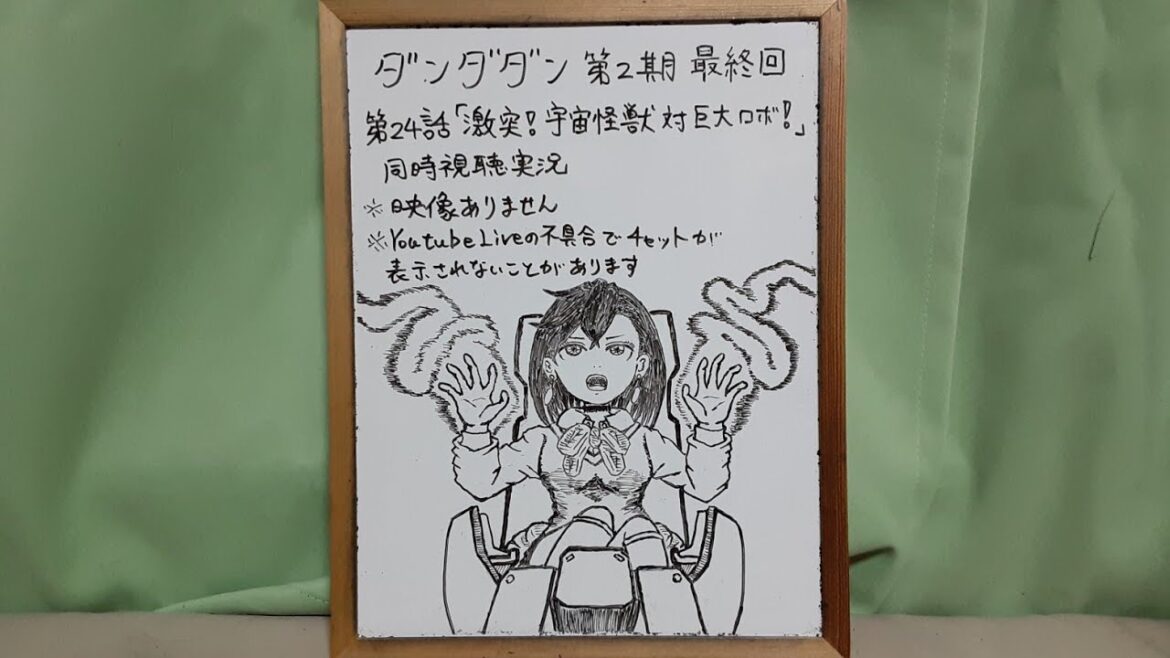 ダンダダン 第2期 最終回
第24話「激突!宇宙怪獣対巨大ロボ!」
同時視聴実況
※映像ありません
※YoutubeLiveの不具合でチャットが
表示されないことがあります